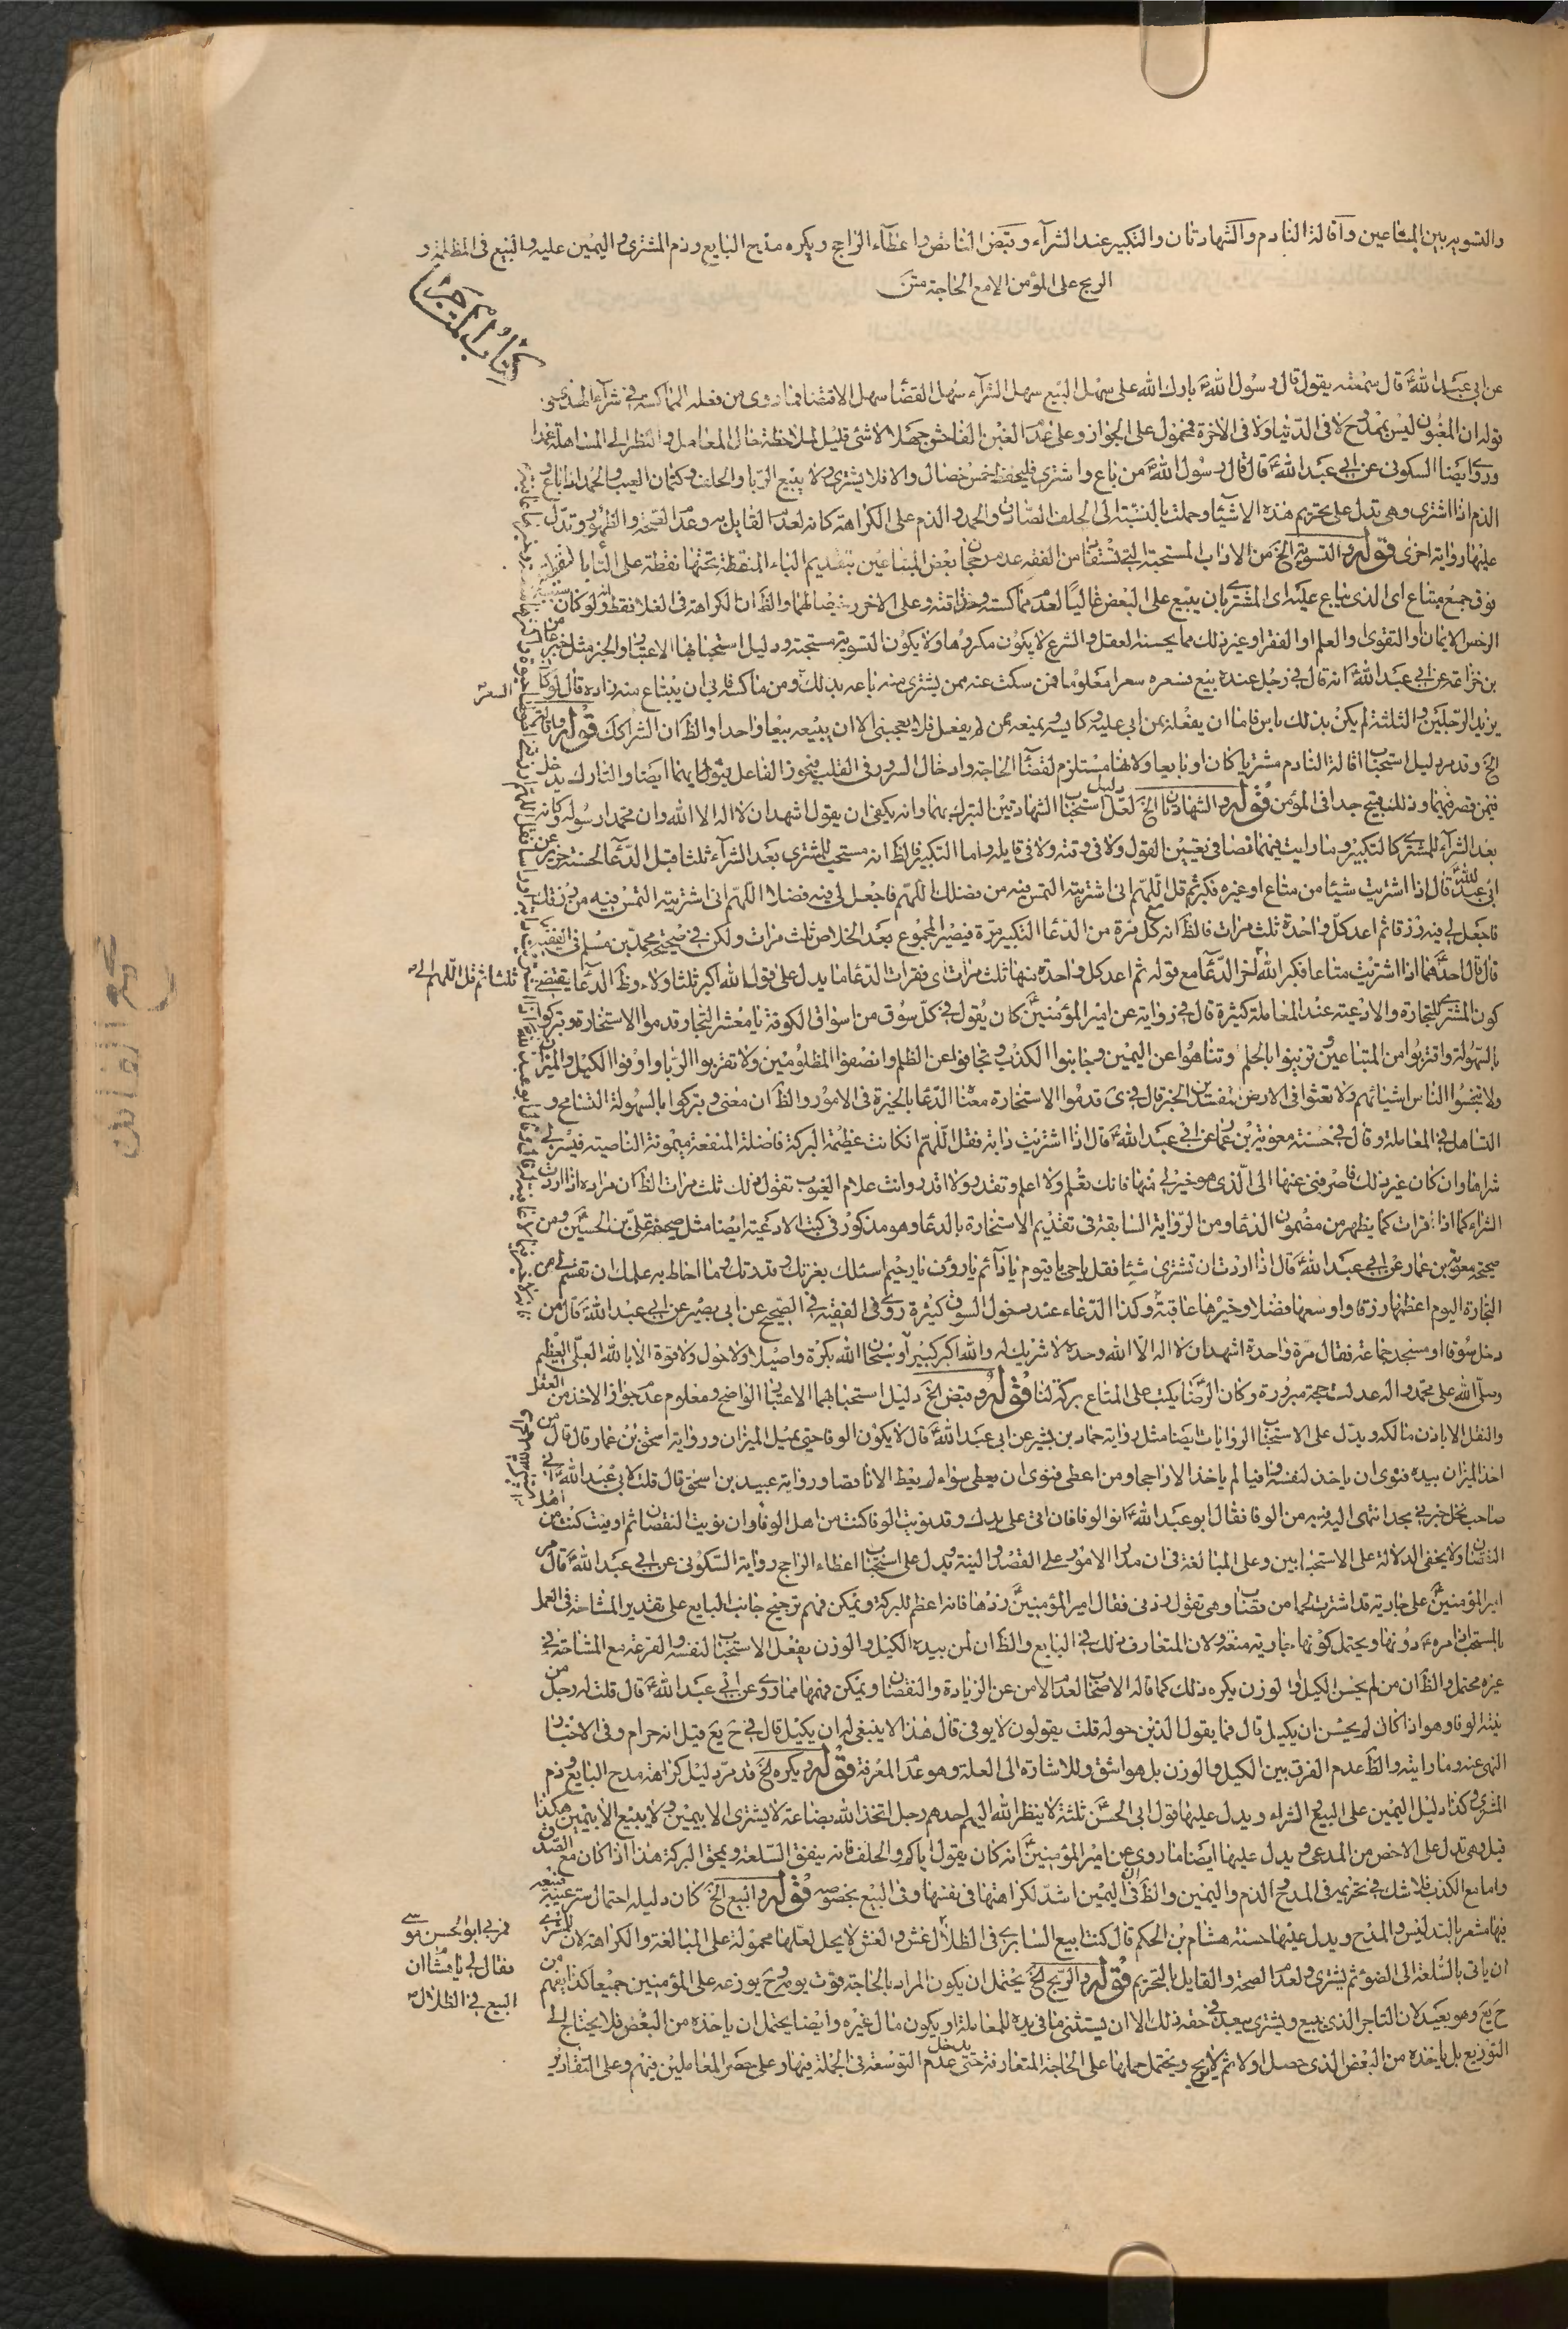 والتسويه بين المبتاعين واقالة النادم والشهادتان والتكبير عند الشرآء وقبض الناقص واعطآء الراجح ويكره مدح البايع وذم المشترى واليمين عليه والبيع فى المظلمة و
الربح على المؤمن الا مع الحاجة متن
كتاب المتاجر
عن ابى عبد الله ع قال سمعته يقول قال رسول الله ص بارك الله على سهل البيع سهل الشرآء سهل القضا سهل الاقتضا فما روى من فعله المماكسة فى شرآء الهدى
قوله ان المغبون ليس بممدوح لا فى الدنيا ولا فى الاخرة فمحمول على الجواز وعلى عدم الغبن الفاحش جهلا لا شئ قليل لملاحظة حال المعامل والنظر الى المساهلة عمدا
وروى ايضا السكونى عن ابى عبد الله ع قال قال رسول الله ص من باع واشترى فليحفظ خمس خصال والا فلا يشترى ولا يبيع الربا والحلف وكتمان العيب والحمد اذا باع و
الذم اذا اشترى وهى تدل على تحريم هذه الاشيآء وحملت بالنسبة الى الحلف الصادق والحمد والذم على الكراهة كانه لعدم القايل به وعدم الصحة والظهور وتدل
عليها رواية اخرى قوله والتسوية الخ من الاداب المستحبة التى تستفاد من الفقه عدم رجحان بعض المبتاعين بتقديم الباء المنقطة تحتها نقطة على التاء
فوق جمع مبتاع اى الذى يباع عليه اى المشترى بان يبيع على البعض غاليا لعدم مماكسته وحذاقته وعلى الاخر رخيصا لهما والظ ان الكراهة فى الغلا فقط ولو كان سبب
الرخص الايمان والتقوى والعلم او الفقر وغير ذلك مما يحسنه العقل والشرع لا يكون مكروها ولا يكون التسوية مستحبة ودليل استحبابها الاعتبار والخبر مثل خبر عامر
بن خزاعه عن ابى عبد الله ع انه قال فى رجل عنده بيع فسعره سعرا معلوما فمن سكت عنه ممن يشترى منه باعه بذلك ومن ماكسه فابى ان يبتاع منه زاده قال لو كان
يزيد الرجلين والثلثة لم يكن بذلك باس فاما ان يفعله بمن ابى عليه وكايسه ويمنعه ممن لم يفعل فلا يعجبنى الا ان يبيعه بيعا واحدا والظ ان الشرا كك قوله واقالة
الخ وقد مر دليل استحباب اقالة النادم مشتريا كان او بايعا ولانها مستلزم لقضآء الحاجة وادخال السرور فى القلب فيحوز الفاعل ثوابهما ايضا والتارك يدخل
فيمن قصر فيهما وذلك قبيح جدا فى المؤمن قوله والشهادتان الخ لعل دليل استحباب الشهادتين التبرك بهما وانه يكفى ان يقول اشهد ان لا اله الا الله وان محمدا رسوله وكانه
بعد الشرآء للمشترى كالتكبير وما رايت فيهما نصا فى تعيين القول ولا فى وقته ولا فى قايله واما التكبير فالظ انه مستحب للمشترى بعد الشرآء ثلثا قبل الدعآء لحسنة حريز عن
ابى عبد الله ع قال اذا اشتريت شيئا من متاع او غيره فكبر ثم قل اللهم انى اشتريته التمس فيه من فضلك اللهم فاجعل لى فيه فضلا اللهم انى اشتريته التمس فيه من رزقك
فاجعل لى فيه رزقا ثم اعد كل واحدة ثلث مرات فالظ انه كل مرة من الدعا مع التكبير مرة فيصير المجموع بعد الخلاص ثلث مرات ولكن فى صحيحة محمد بن مسلم فى الفقيه
قال قال احدهما اذا اشتريت متاعا فكبر الله اخر الدعآء مع قوله ثم اعد كل واحدة منها ثلث مرات اى فقرات الدعا ما يدل على قول الله اكبر ثلثا ولاء وظ الدعآء يقتضى
ثلثا ثم قل اللهم انى
كون المشترى للتجارة والادعية عند المعاملة كثيرة قال فى رواية عن امير المؤمنين ع كان يقول فى كل سوق من اسواق الكوفة يا معشر التجار قدموا الاستخارة وتبركوا
بالسهولة واقتربوا من المبتاعين وتزينوا بالحلم وتناهوا عن اليمين وجانبوا الكذب وتجافوا عن الظلم وانصفوا المظلومين ولا تقربوا الربا واوفوا الكيل والميزان
ولا تبخسوا الناس اشيائهم ولا تعثوا فى الارض مفسدين الخبر قال فى ى قدموا الاستخارة معنا الدعا بالخيرة فى الامور والظ ان معنى وتبركوا بالسهولة التسامح و
التساهل فى المعاملة وقال فى حسنة معوية بن عمار عن ابى عبد الله ع قال اذا اشتريت دابة فقل اللهم ان كانت عظيمة البركة فاضلة المنفعة ميمونة الناصية فيسر لى
شراها وان كان غير ذلك فاصرفنى عنها الى الذى هو خير لى منها فانك تعلم ولا اعلم وتقدر ولا اقدر وانت علام الغيوب تقول ذلك ثلث مرات الظ ان مراده اذا اردت
الشراء كما اذا قرات كما يظهر من مضمون الدعا ومن الرواية السابقة فى تقديم الاستخارة بالدعا وهو مذكور فى كتب الادعية ايضا مثل صحيفة على بن الحسين ع ومن
صحيحة معوية بن عمار عن ابى عبد الله ع قال اذا اردت ان تشترى شيئا فقل يا حى يا قيوم يا دآئم يا رؤف يا رحيم اسئلك بعزتك وقدرتك وما احاط به علمك ان تقسم لى من
التجارة اليوم اعظمها رزقا واوسعها فضلا وخيرها عاقبة وكذا الدعاء عند دخول السوق كثيرة روى فى الفقيه فى الصحيح عن ابى بصير عن ابى عبد الله ع قال من
دخل سوقا او مسجد جماعة فقال مرة واحدة اشهد ان لا اله الا الله وحده لا شريك له والله اكبر كبيرا وسبحان الله بكرة واصيلا ولا حول ولا قوة الا بالله العلى العظيم
وصلى الله على محمد واله عدلت حجة مبرورة وكان الرضا ع يكتب على المتاع بركة لنا قوله وقبض الخ دليل استحبابهما الاعتبار الواضح ومعلوم عدم جواز الاخذ من العقل
والنقل الا باذن مالكه ويدل على الاستحباب الروايات ايضا مثل رواية حماد بن بشير عن ابى عبد الله ع قال لا يكون الوفا حتى يميل الميزان ورواية اسحق بن عمار قال قال من
اخذ الميزان بيده فنوى ان ياخذ لنفسه وافيا لم ياخذ الا راجحا ومن اعطى فنوى ان يعطى سواء لم يعط الا ناقصا ورواية عبيد بن اسحق قال قلت لابى عبد الله ع انى
صاحب نخل فخبرنى بحد انتهى اليه فيه من الوفا فقال ابو عبد الله ع انو الوفا فان اتى على يدك وقد نويت الوفا كنت من اهل الوفا وان نويت النقصان ثم اوفيت كنت من اهل
النقصان ولا يخفى الدلالة على الاستحبابين وعلى المبالغة فى ان مدار الامور على القصد والنية ويدل على استحباب اعطاء الراجح رواية السكونى عن ابى عبد الله ع قال مر
امير المؤمنين ع على جارية قد اشترت لحما من قصاب وهى تقول زدنى فقال امير المؤمنين ع زدها فانه اعظم للبركة ويمكن فهم ترجيح جانب البايع على تقدير المشاحة فى العمل
بالمستحب لامره ع دونها ويحتمل كونها جارية منعة ولان المتعارف ذلك فى البايع والظ ان لمن بيده الكيل والوزن يفعل الاستحباب لنفسه والقرعة مع المشاحة فى
غيره محتمل والظ ان من لم يحسن الكيل والوزن يكره ذلك كما قاله الاصحاب لعدم الامن عن الزيادة والنقصان ويمكن فهمها مما روى عن ابى عبد الله ع قال قلت له رجل من
نيته الوفا وهو اذا كال لم يحسن ان يكيل قال فما يقول الذين حوله قلت يقولون لا يوفى قال هذا لا ينبغى له ان يكيل قال فى ح يع قيل انه حرام وفى الاخبار
النهى عنه وما رايته والظ عدم الفرق بين الكيل والوزن بل هو اشق وللاشارة الى العلة وهو عدم المعرفة قوله ويكره الخ قد مر دليل كراهة مدح البايع وذم
المشترى وكذا دليل اليمين على البيع والشراء ويدل عليها قول ابى الحسن ع ثلثة لا ينظر الله اليهم احدهم رجل اتخذ الله بضاعة لا يشترى الا بيمين ولا يبيع الا بيمين هكذا
قيل وهى تدل على الاخص من المدعى ويدل عليها ايضا ما روى عن امير المؤمنين ع انه كان يقول اياكم والحلف فانه ينفق السلعة ويمحق البركة هذا اذا كان مع الصدق
واما مع الكذب فلا شك فى تحريمه فى المدح والذم واليمين والظ ان فى اليمين اشد لكراهتها فى نفسها وفى البيع بخصوصه قوله والبيع الخ كان دليله احتمال ستر عيبه فبيعه
فيها مشعر بالتدليس والمدح ويدل عليها حسنة هشام بن الحكم قال كنت ابيع السابرى فى الظلال غش والغش لا يحل لعلها محمولة على المبالغة والكراهة لان للمشترى
فمر بى ابو الحسن موسى
فقال لى يا هشام ان
البيع فى الظلال
ان ياتى بالسلعة الى الضوء ثم يشترى ولعدم الصحة والقايل بالتحريم قوله والربح الخ يحتمل ان يكون المراد بالحاجة قوت يومه وح يوزعه على المؤمنين جميعا كذا يفهم من
ح يع وهو بعيد لان التاجر الذى يبيع ويشترى يبعد فى حقه ذلك الا ان يستثنى ما فى يده للمعاملة او يكون مال غيره وايضا يحتمل ان ياخذه من البعض فلا يحتاج الى
التوزيع بل ياخذه من البعض الذى حصل اولا ثم لا يربح ويحتمل حملها على الحاجة المتعارفة حتى يدخل عدم التوسعة فى الجملة فيها وعلى حصر المعاملين فيهم وعلى التقادير